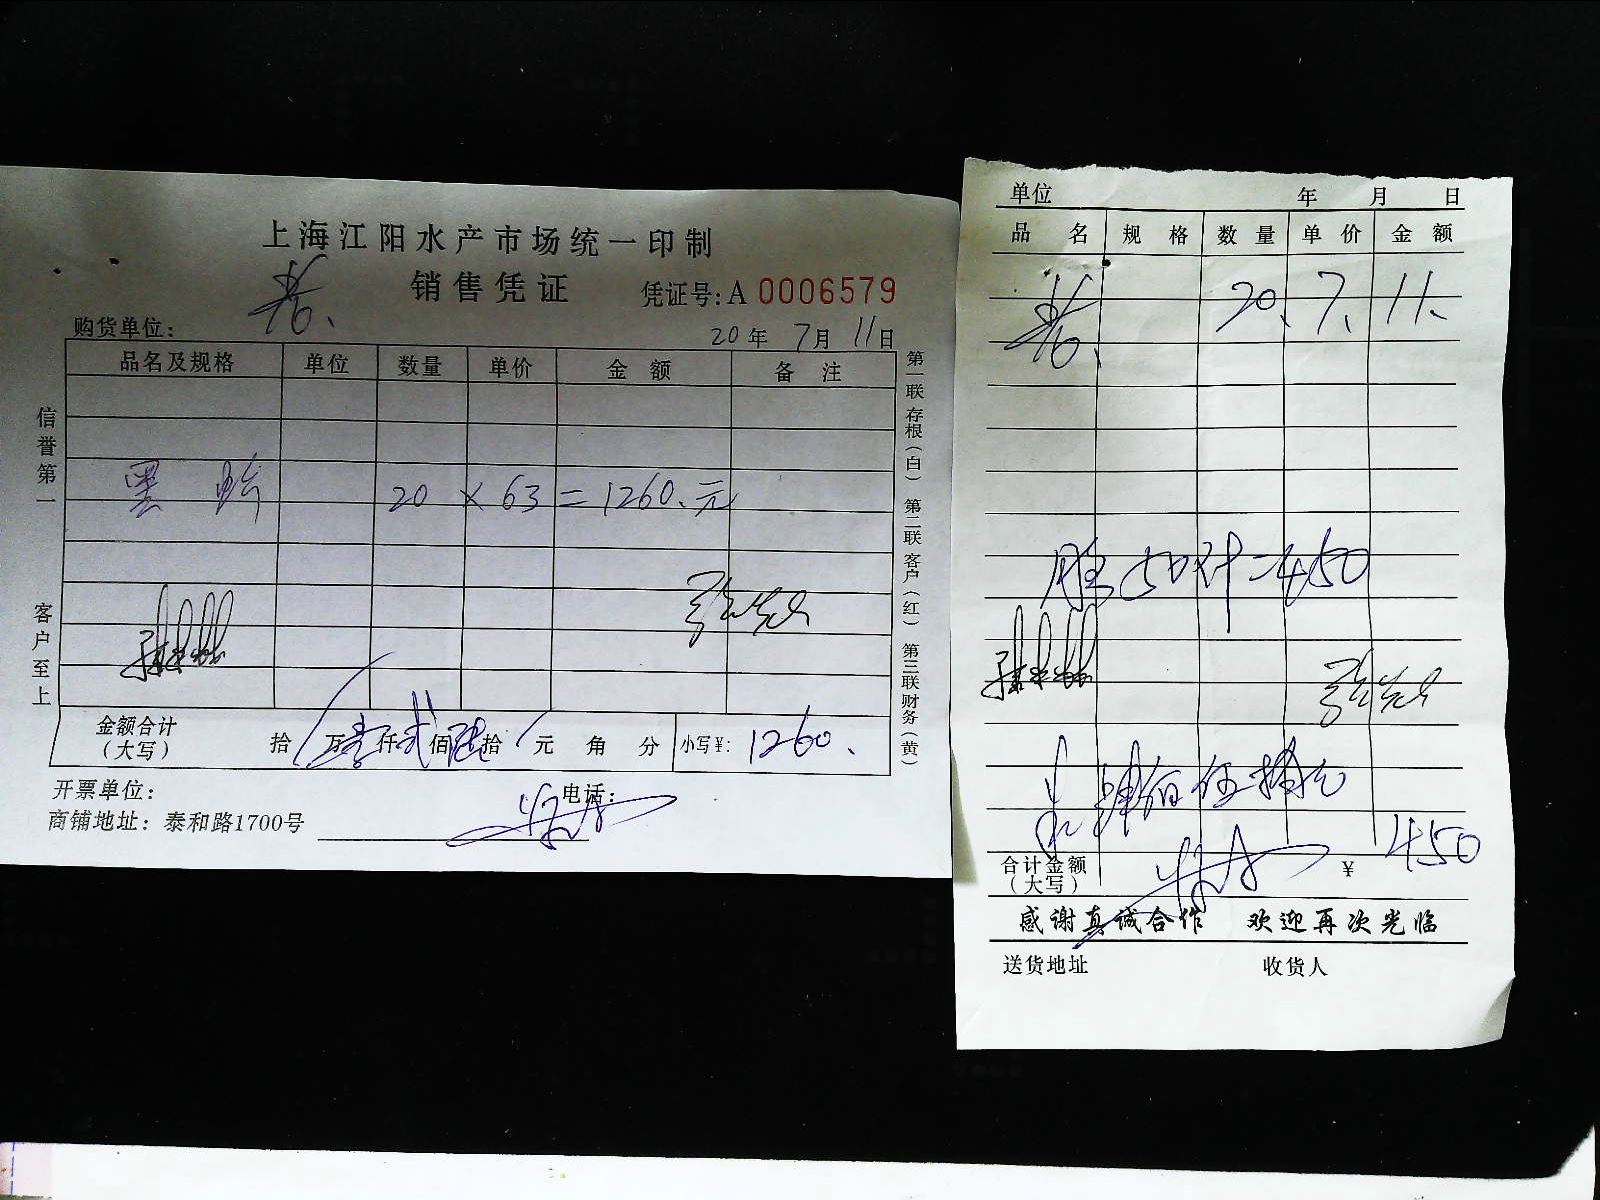 上海江阳水产市场统一印制
销售凭证
凭证号:A 0006579
购货单位:
20年 7月 11日
品名及规格 单位 数量 单价 金额 备注
20 × 63 = 1260.元
金额合计
(大写)
拾 万 仟 佰 拾 元 角 分 小写¥: 1260.
开票单位:
电话:
商铺地址: 泰和路1700号
信誉第一
客户至上
第一联存根(白) 第二联客户(红) 第三联财务(黄)
单位 年 月 日
品名 规格 数量 单价 金额
20. 7. 11.
=450
肆佰伍拾元
合计金额
(大写)
¥ 450
感谢真诚合作 欢迎再次光临
送货地址 收货人